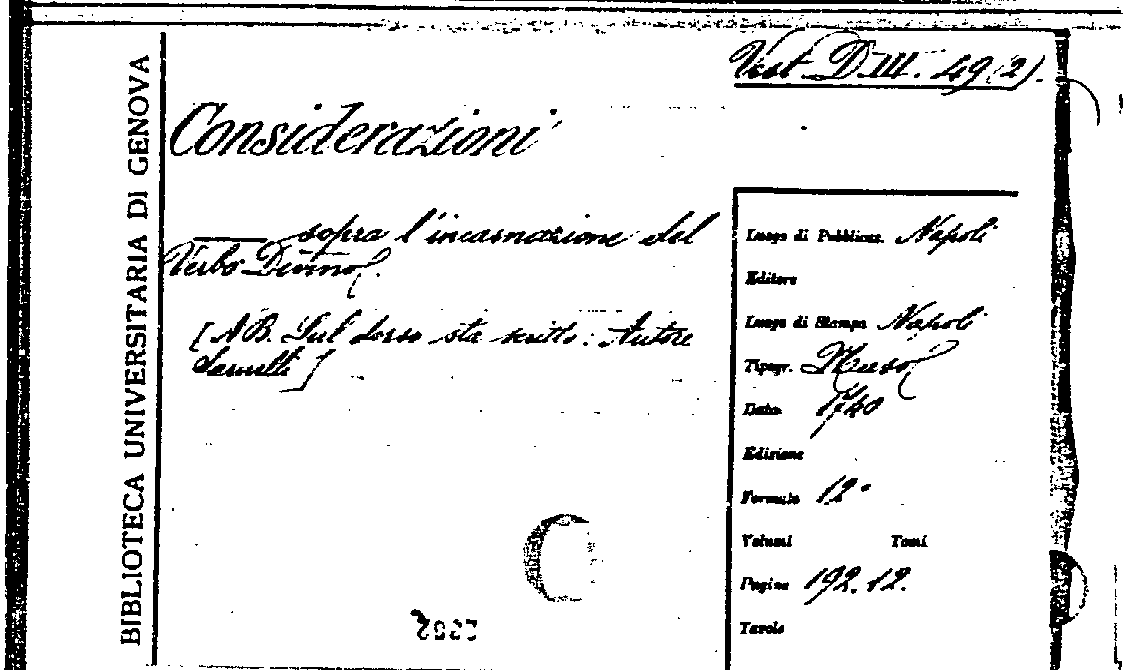 BIBLIOTECA UNIVERSITARIA DI GENOVA
Vest. D.III. 49(2).
Considerazioni
sopra l'incarnazione del
Verbo Divino.
[NB. Sul dorso sta scritto: Autore
]
Luogo di Pubblicaz. Napoli
Editore
Luogo di Stampa Napoli
Tipogr.
Data 1740
Edizione
Formato 12°
Volumi Tomi
Pagine 192.12.
Tavole